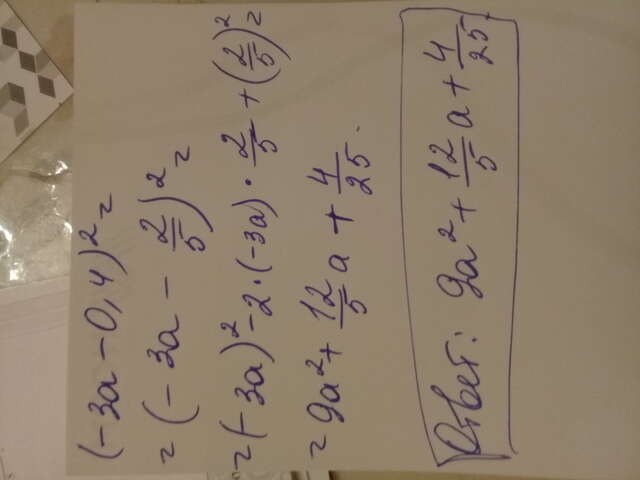 (-3a - 0,4)² =
= (-3a - 2/5)² =
= (-3a)² - 2·(-3a)·2/5 + (2/5)² =
= 9a² + 12/5 a + 4/25.
Ответ: 9a² + 12/5 a + 4/25.